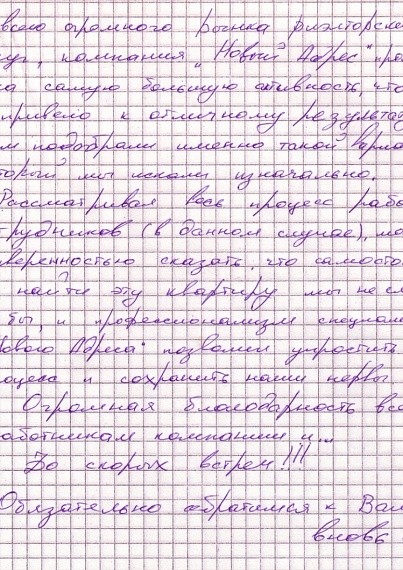 всего огромного рынка риэлторск
уг, компания „Новый Адрес" про
а самую большую активность, что
привело к отличному результату
м подобрали именно такой вариа
торый мы искали изначально.
Рассматривая весь процесс рабо
трудников (в данном случае), мо
веренностью сказать, что самосто
найти эту квартиру мы не см
бы, и профессионализм специали
Нового Адреса" позволил упростить
оцесс и сохранить наши нервы
Огромная благодарность все
аботникам компании и...
До скорых встреч!!!
Обязательно обратимся к Вам
вновь